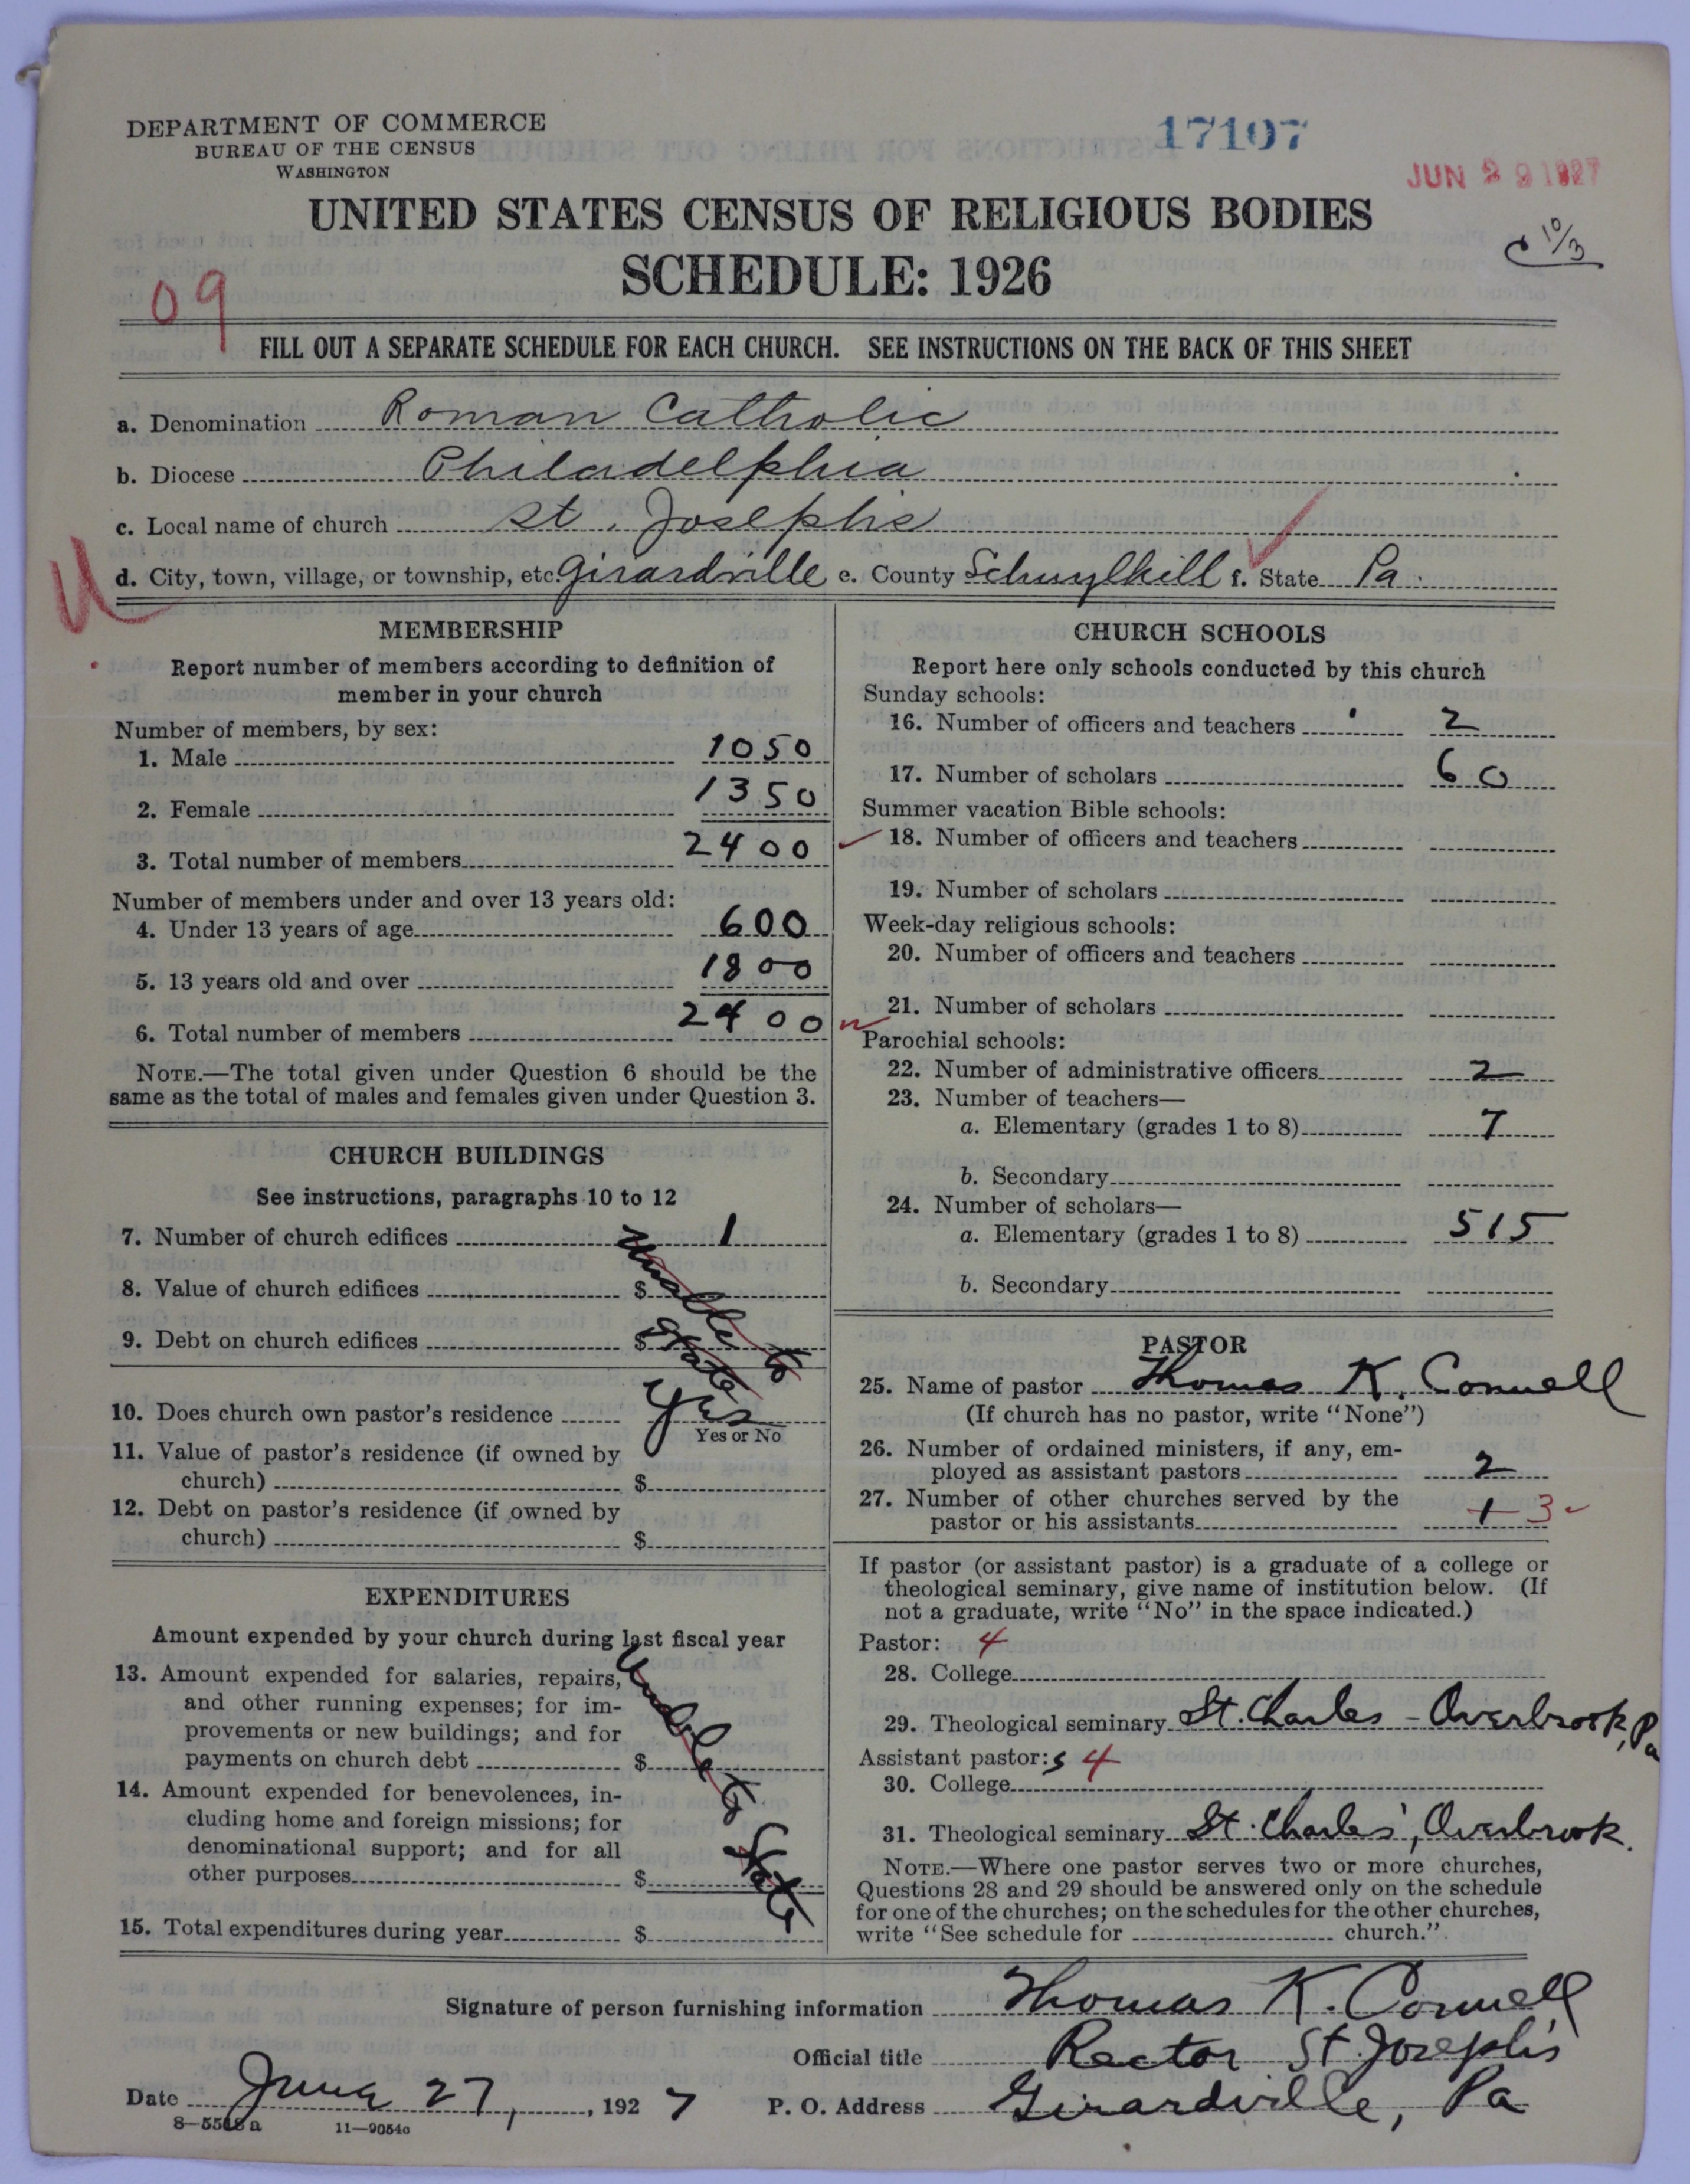 DEPARTMENT OF COMMERCE
BUREAU OF THE CENSUS
WASHINGTON
17107
JUN 29 1927
UNITED STATES CENSUS OF RELIGIOUS BODIES
SCHEDULE: 1926
C 10/3
09
FILL OUT A SEPARATE SCHEDULE FOR EACH CHURCH. SEE INSTRUCTIONS ON THE BACK OF THIS SHEET
a. Denomination Roman Catholic
b. Diocese Philadelphia
c. Local name of church St. Josephs
d. City, town, village, or township, etc. Girardville e. County Schuylkill f. State Pa.
MEMBERSHIP
Report number of members according to definition of
member in your church
Number of members, by sex:
1. Male 1050
2. Female 1350
3. Total number of members 2400
Number of members under and over 13 years old:
4. Under 13 years of age 600
5. 13 years old and over 1800
6. Total number of members 2400
NOTE.—The total given under Question 6 should be the
same as the total of males and females given under Question 3.
CHURCH BUILDINGS
See instructions, paragraphs 10 to 12
7. Number of church edifices 1
8. Value of church edifices $
9. Debt on church edifices $
Unable to
State
10. Does church own pastor's residence Yes
Yes or No
11. Value of pastor's residence (if owned by
church) $
12. Debt on pastor's residence (if owned by
church) $
EXPENDITURES
Amount expended by your church during last fiscal year
13. Amount expended for salaries, repairs,
and other running expenses; for im-
provements or new buildings; and for
payments on church debt $
14. Amount expended for benevolences, in-
cluding home and foreign missions; for
denominational support; and for all
other purposes $
15. Total expenditures during year $
Unable to State
CHURCH SCHOOLS
Report here only schools conducted by this church
Sunday schools:
16. Number of officers and teachers 2
17. Number of scholars 60
Summer vacation Bible schools:
18. Number of officers and teachers
19. Number of scholars
Week-day religious schools:
20. Number of officers and teachers
21. Number of scholars
Parochial schools:
22. Number of administrative officers 2
23. Number of teachers—
a. Elementary (grades 1 to 8) 7
b. Secondary
24. Number of scholars—
a. Elementary (grades 1 to 8) 515
b. Secondary
PASTOR
25. Name of pastor Thomas K. Connell
(If church has no pastor, write "None")
26. Number of ordained ministers, if any, em-
ployed as assistant pastors 2
27. Number of other churches served by the
pastor or his assistants 1 3
If pastor (or assistant pastor) is a graduate of a college or
theological seminary, give name of institution below. (If
not a graduate, write "No" in the space indicated.)
Pastor: 4
28. College
29. Theological seminary St. Charles - Overbrook, Pa
Assistant pastor:s 4
30. College
31. Theological seminary St. Charles', Overbrook.
NOTE.—Where one pastor serves two or more churches,
Questions 28 and 29 should be answered only on the schedule
for one of the churches; on the schedules for the other churches,
write "See schedule for church."
Signature of person furnishing information Thomas K. Connell
Official title Rector St. Joseph's
Date June 27, 1927 P. O. Address Girardville, Pa
8—5518a 11—9054c